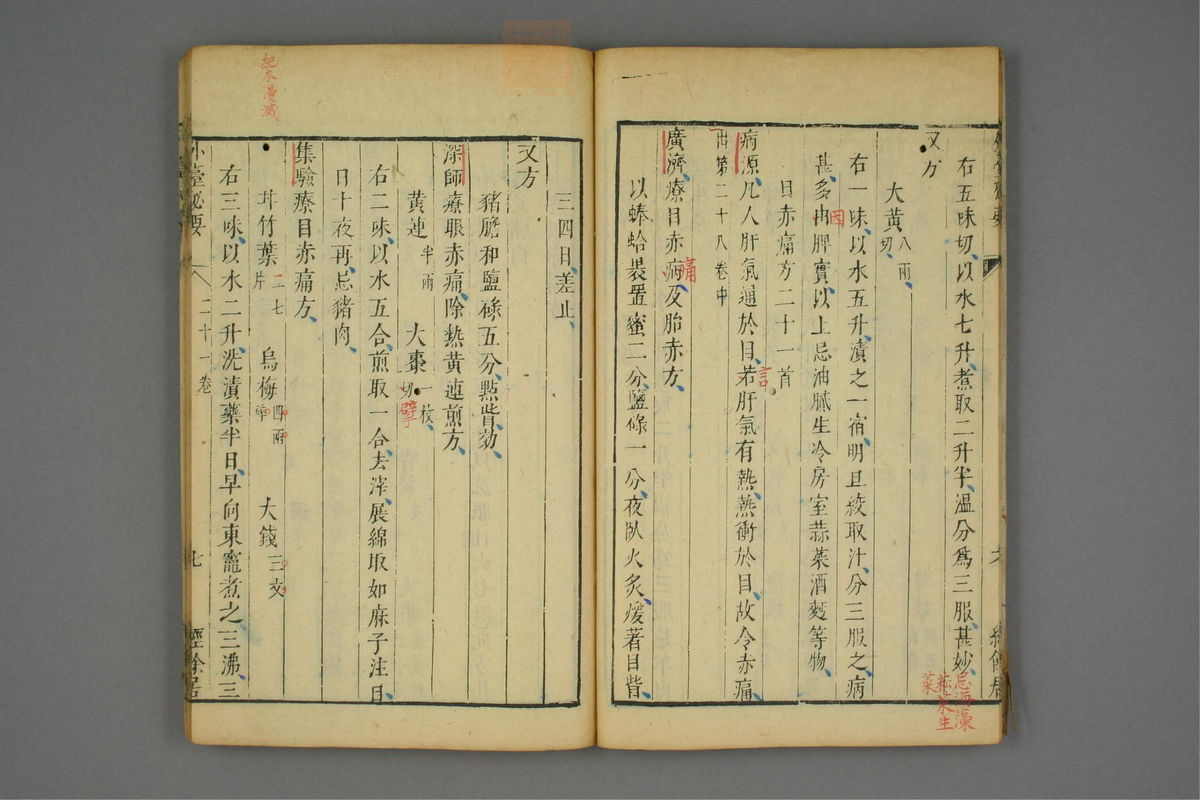 右五味切以水七升煮取二升半溫分爲三服甚妙
忌海藻
菘
生
菜
又方
大黃八兩切
右一味以水五升漬之一宿明旦絞取汁分三服之病
甚多由脾實以上忌油膩生冷房室蒜菜酒麪等物
因
目赤痛方二十一首
病源凡人肝氣通於目若肝氣有熱熱衝於目故令赤痛
言
出第二十八卷中
廣濟療目赤病及胎赤方
痛
以蜯蛤裴置蜜二分鹽綠一分夜臥火炙煖著目眥
三四日差止
又方
豬膽和鹽碌五分點眥効
深師療眼赤痛除熱黃連煎方
黃連半兩 大棗一枚切
擘
右二味以水五合煎取一合去滓展綿取如麻子注目
日十夜再忌豬肉
集驗療目赤痛方
竹葉二七片 烏梅四兩碎 大錢三文
紀本漫滅
右三味以水二升洗漬藥半日早向東竈煮之三沸三
外臺祕要 二十一卷 七 經餘居